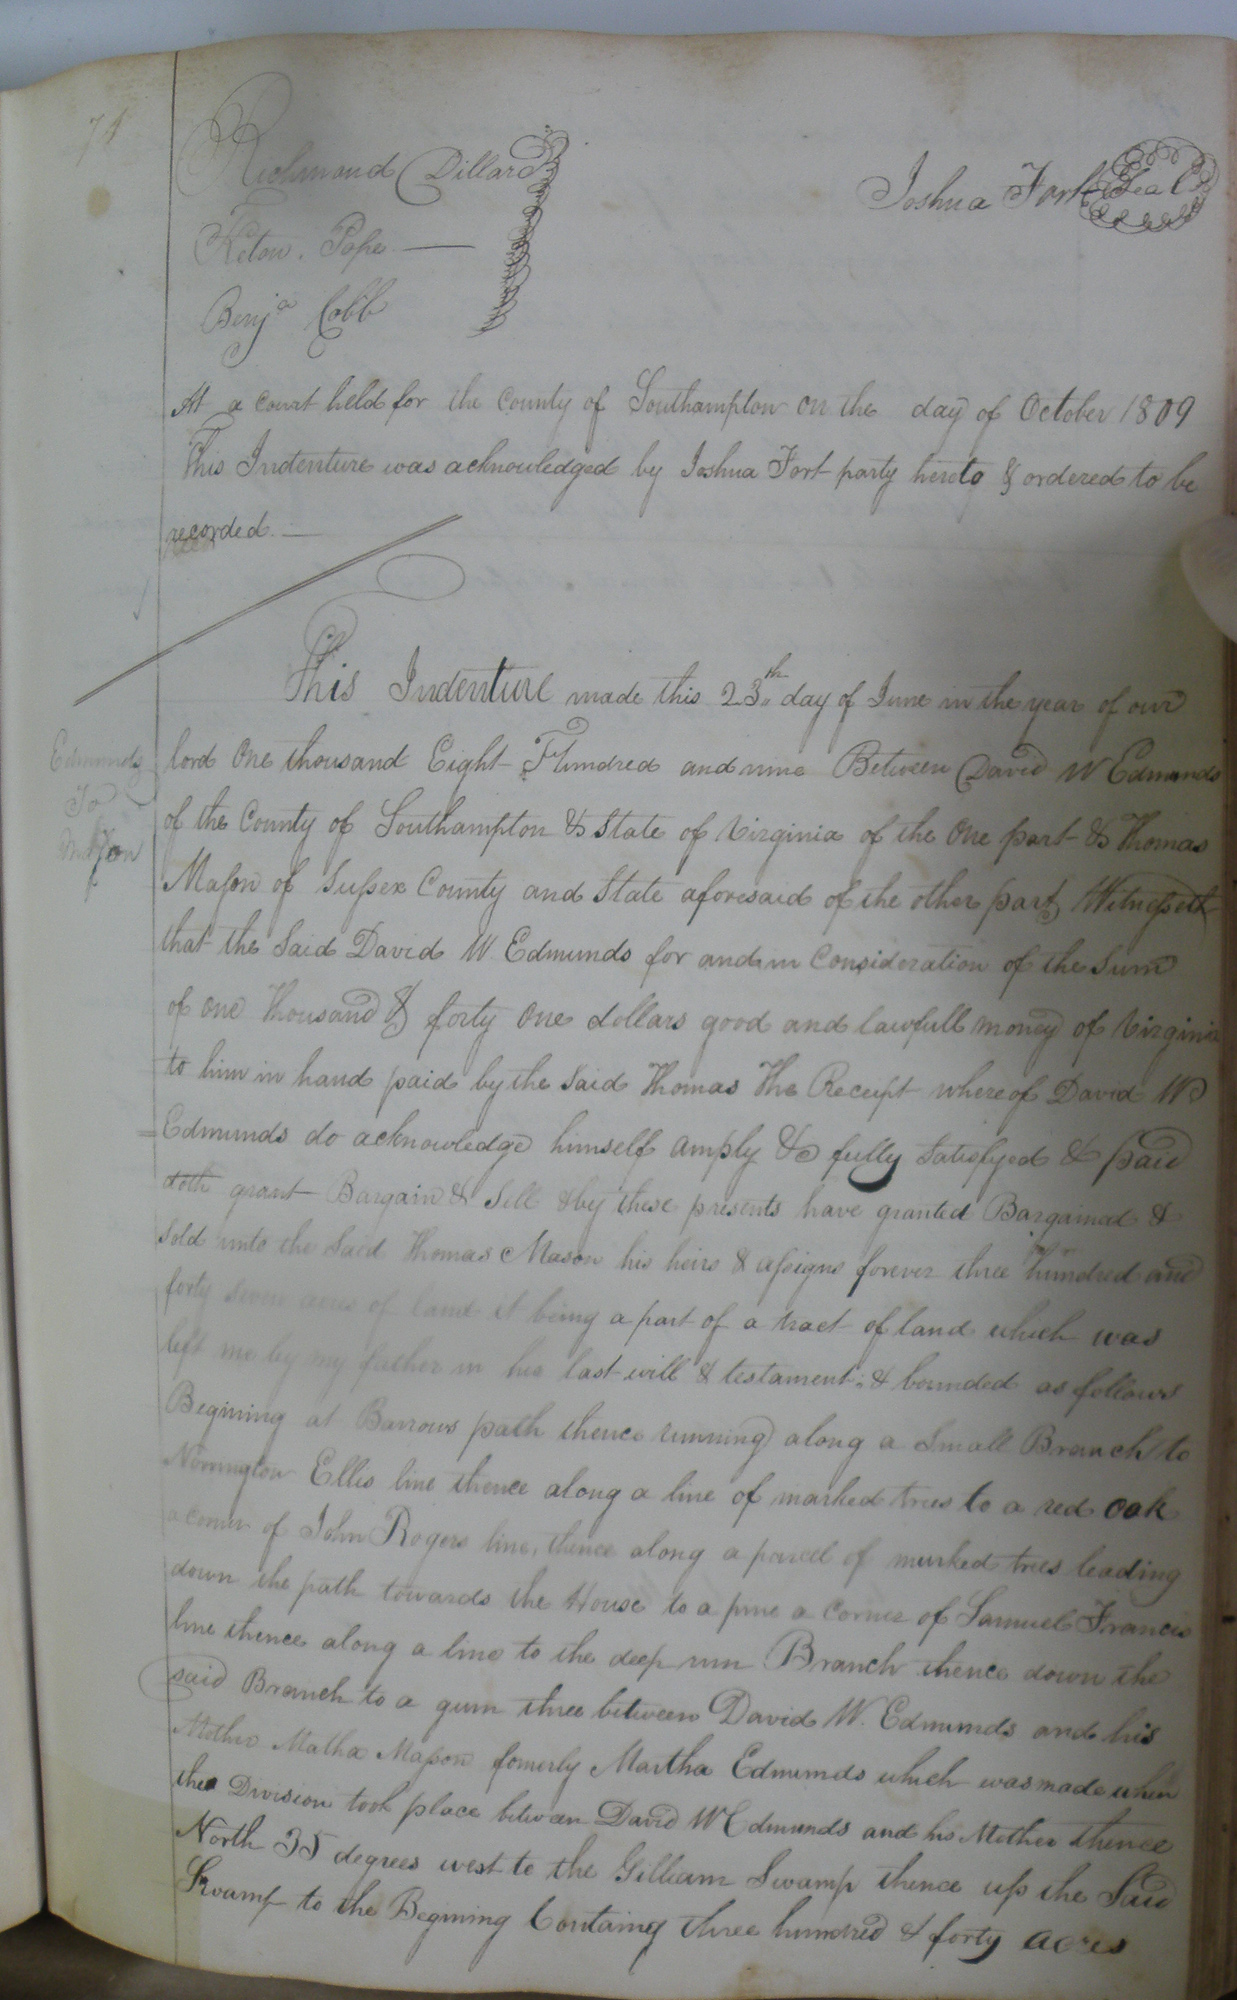 74
Richmond Dillard
Joshua Fort Seal
Keton. Pope —
Benjª Cobb
At a court held for the County of Southampton on the day of October 1809
This Indenture was acknowledged by Joshua Fort party hereto & ordered to be
recorded. —
This Indenture made this 23th day of June in the year of our
Edmunds
To
Mason
lord One thousand Eight Hundred and nine Between David W Edmunds
of the County of Southampton & State of Virginia of the One part & Thomas
Mason of Sussex County and State aforesaid of the other part Witnesseth
that the Said David W. Edmunds for and in Consideration of the Sum
of one Thousand & forty One dollars good and lawfull money of Virginia
to him in hand paid by the Said Thomas The Receipt whereof David W
Edmunds do acknowledge himself amply & fully Satisfyed & paid
doth grant Bargain & Sell & by these presents have granted Bargained &
Sold unto the Said Thomas Mason his heirs & assigns forever three hundred and
forty seven acres of land it being a part of a tract of land which was
left me by my father in his last will & testament; & bounded as follows
Begining at Barrows path thence running along a Small Branch to
Norrington Ellis line thence along a line of marked trees to a red oak
a corner of John Rogers line, thence along a parcel of marked trees leading
down the path towards the House to a pine a Corner of Samuel Francis
line thence along a line to the deep run Branch thence down the
said Branch to a gum three between David W. Edmunds and his
Mother Matha Mason fomerly Martha Edmunds which was made when
the Division took place between David W Edmunds and his Mother thence
North 35 degrees west to the Gilliam Swamp thence up the Said
Swamp to the Begining Containg three hundred & forty acres